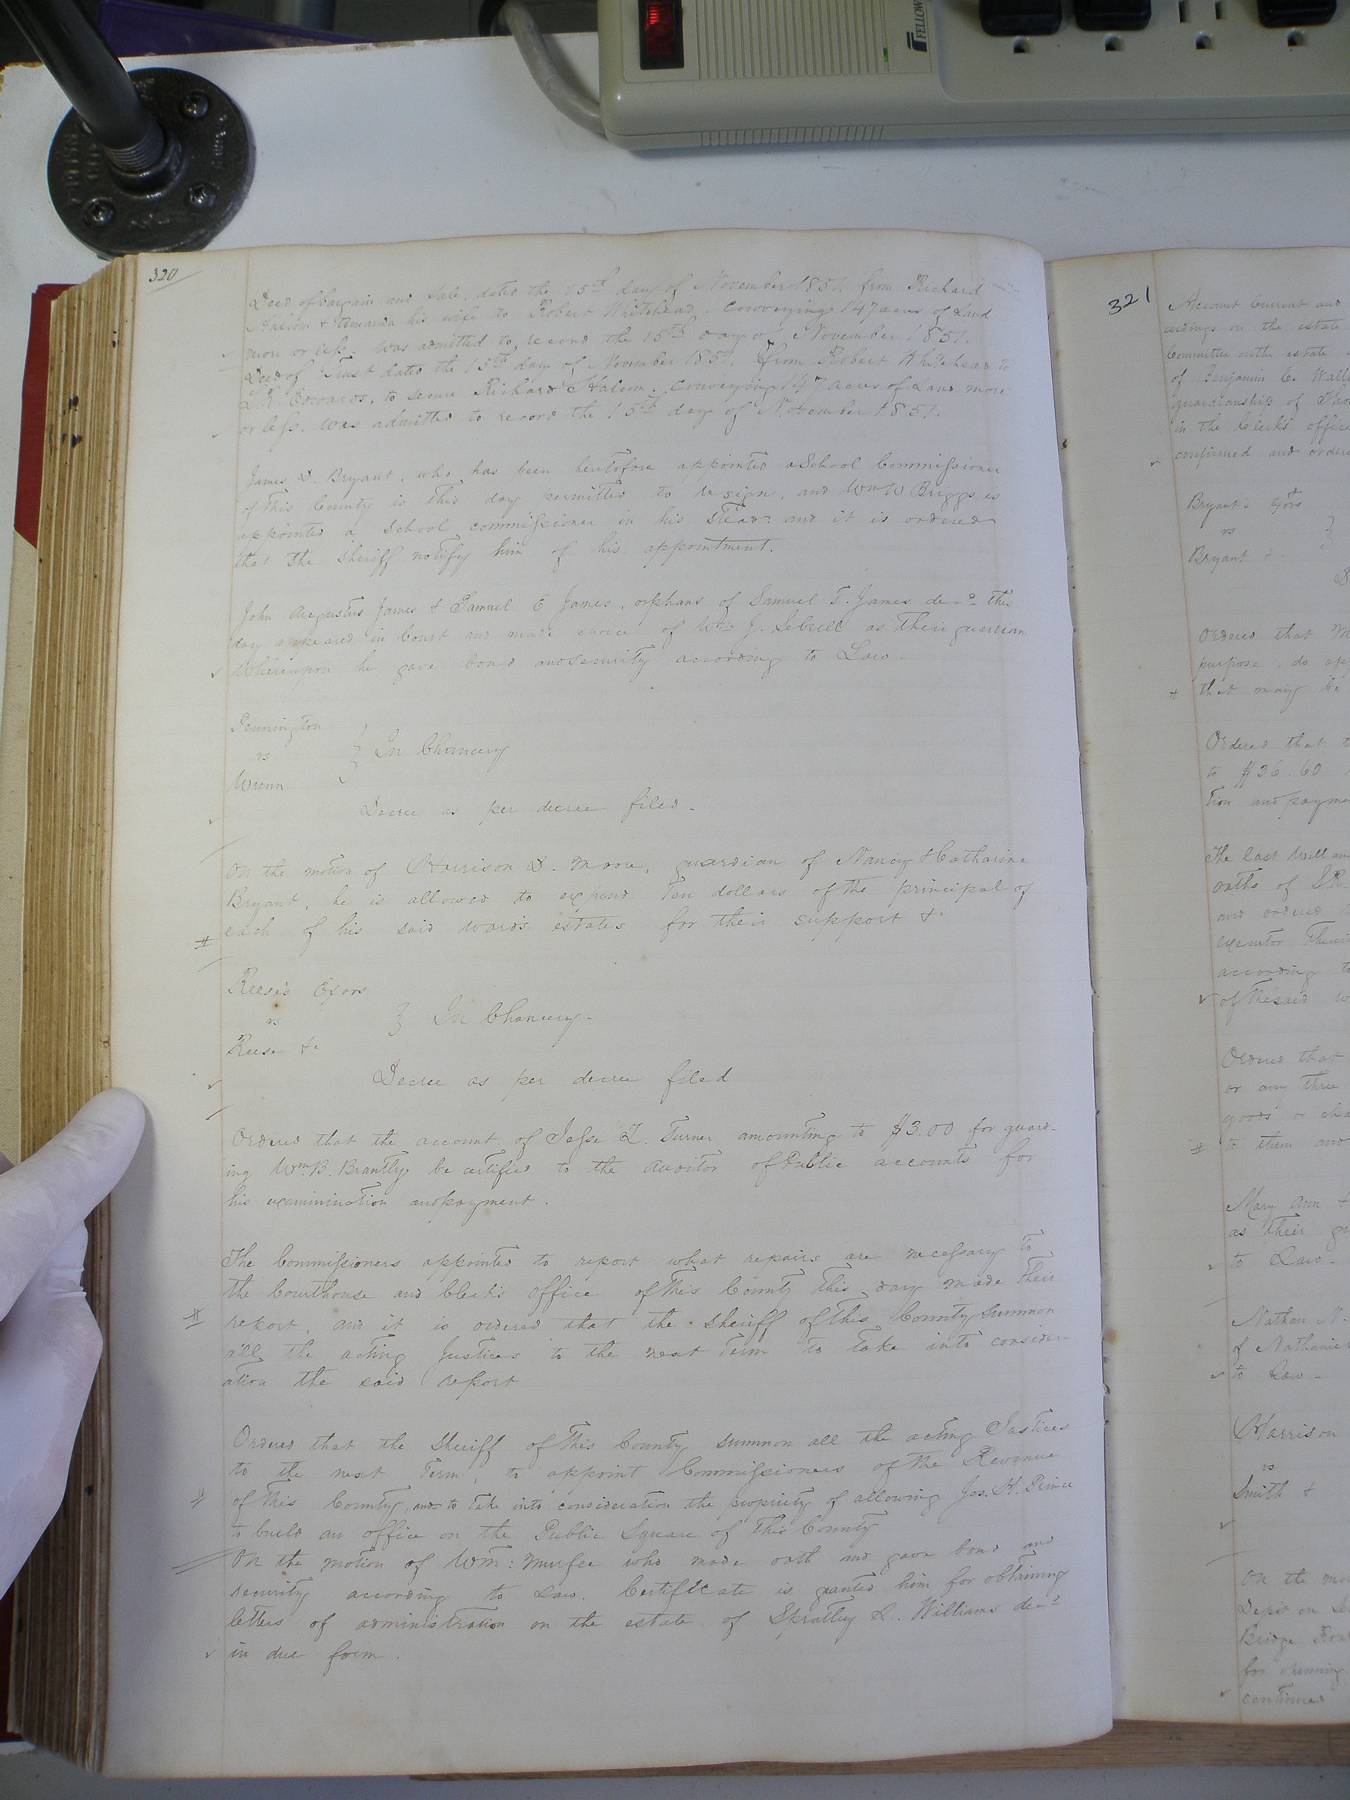 320
Deed of bargain and sale, dated the 15th day of November 1851 from Richard
Halcom & Amanda his wife to Robert Whitehead, conveying 147 acres of Land
more or less, was admitted to record the 15th day of November 1851.
Deed of Trust dated the 15th day of November 1851, from Robert Whitehead to
Edwards, to secure Richard Halcom, conveying 147 acres of Land more
or less, was admitted to record the 15th day of November 1851.
James D. Bryant, who has been heretofore appointed a School Commissioner
of this County is this day permitted to resign, and Wm W Briggs is
appointed a School commissioner in his stead and it is ordered
that the Sheriff notify him of his appointment.
John Augustus James & Samuel E James, orphans of Samuel T. James decd this
day appeared in Court and made choice of Wm J. Sebrell as their guardian
Whereupon he gave bond and security according to Law.
Pennington
vs } In Chancery
Wrenn
Decree as per decree filed.
On the motion of Harrison D. Moore, guardian of Nancy & Catharine
Bryant, he is allowed to expend Ten dollars of the principal of
each of his said wards estates for their support &c
Reese's Exors
vs } In Chancery.
Reese &c
Decree as per decree filed
Ordered that the account of Jesse L. Turner amounting to $3.00 for guard-
ing Wm B. Brantly be certified to the Auditor of Public accounts for
his examinination and payment.
The Commissioners appointed to report what repairs are necessary to
the Courthouse and Clerks office of this County this day made their
report, and it is ordered that the Sheriff of this County summon
all the acting Justices to the next Term to take into consider-
ation the said report
Ordered that the Sheriff of this County summon all the acting Justices
to the next Term, to appoint Commissioners of the Revenue
of this County, and to take into consideration the propriety of allowing Jos. H. Prince
to build an office on the Public Square of this County
On the motion of Wm: Murfee who made oath and gave bond and
security according to Law. Certificate is granted him for obtaining
letters of administration on the estate of Spratley R. Williams decd
in due form.
321
Account Current and
on the estate
Committee on the estate
of Benjamin C. Wall
guardianship of
in the Clerks office
confirmed and ordere
Bryant's Exors
vs }
Bryant &
Ordered that M
purpose, do ap
that may be
Ordered that t
to $36.60
tion and payme
The last Will an
oaths of J.R.
and ordered
executor there
according to
of the said w
Ordered that
or any three
goods or cha
to them and
Mary Ann &
as their gu
to Law.
Nathan N.
of Nathanie
to Law.
Harrison
vs
Smith &
On the mo
Depot on
Bridge Roa
for opening
continued
FELLOW